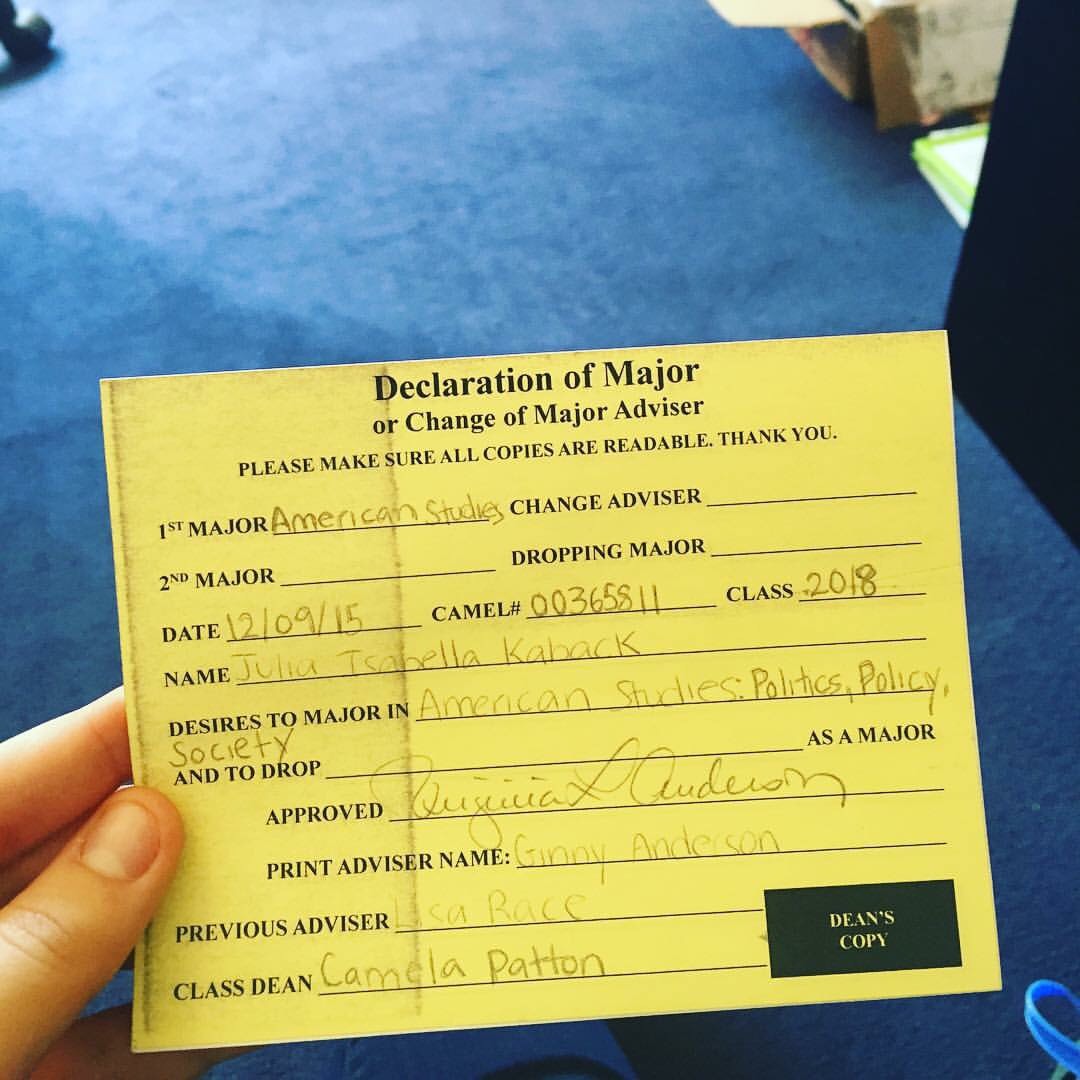 Declaration of Major
or Change of Major Adviser
PLEASE MAKE SURE ALL COPIES ARE READABLE. THANK YOU.
1ST MAJOR American Studies CHANGE ADVISER
2ND MAJOR DROPPING MAJOR
DATE 12/09/15 CAMEL# 00365811 CLASS 2018
NAME Julia Isabella Kaback
DESIRES TO MAJOR IN American Studies: Politics, Policy,
Society
AND TO DROP AS A MAJOR
APPROVED Virginia L Anderson
PRINT ADVISER NAME: Ginny Anderson
PREVIOUS ADVISER Lisa Race
CLASS DEAN Camela Patton
DEAN'S
COPY